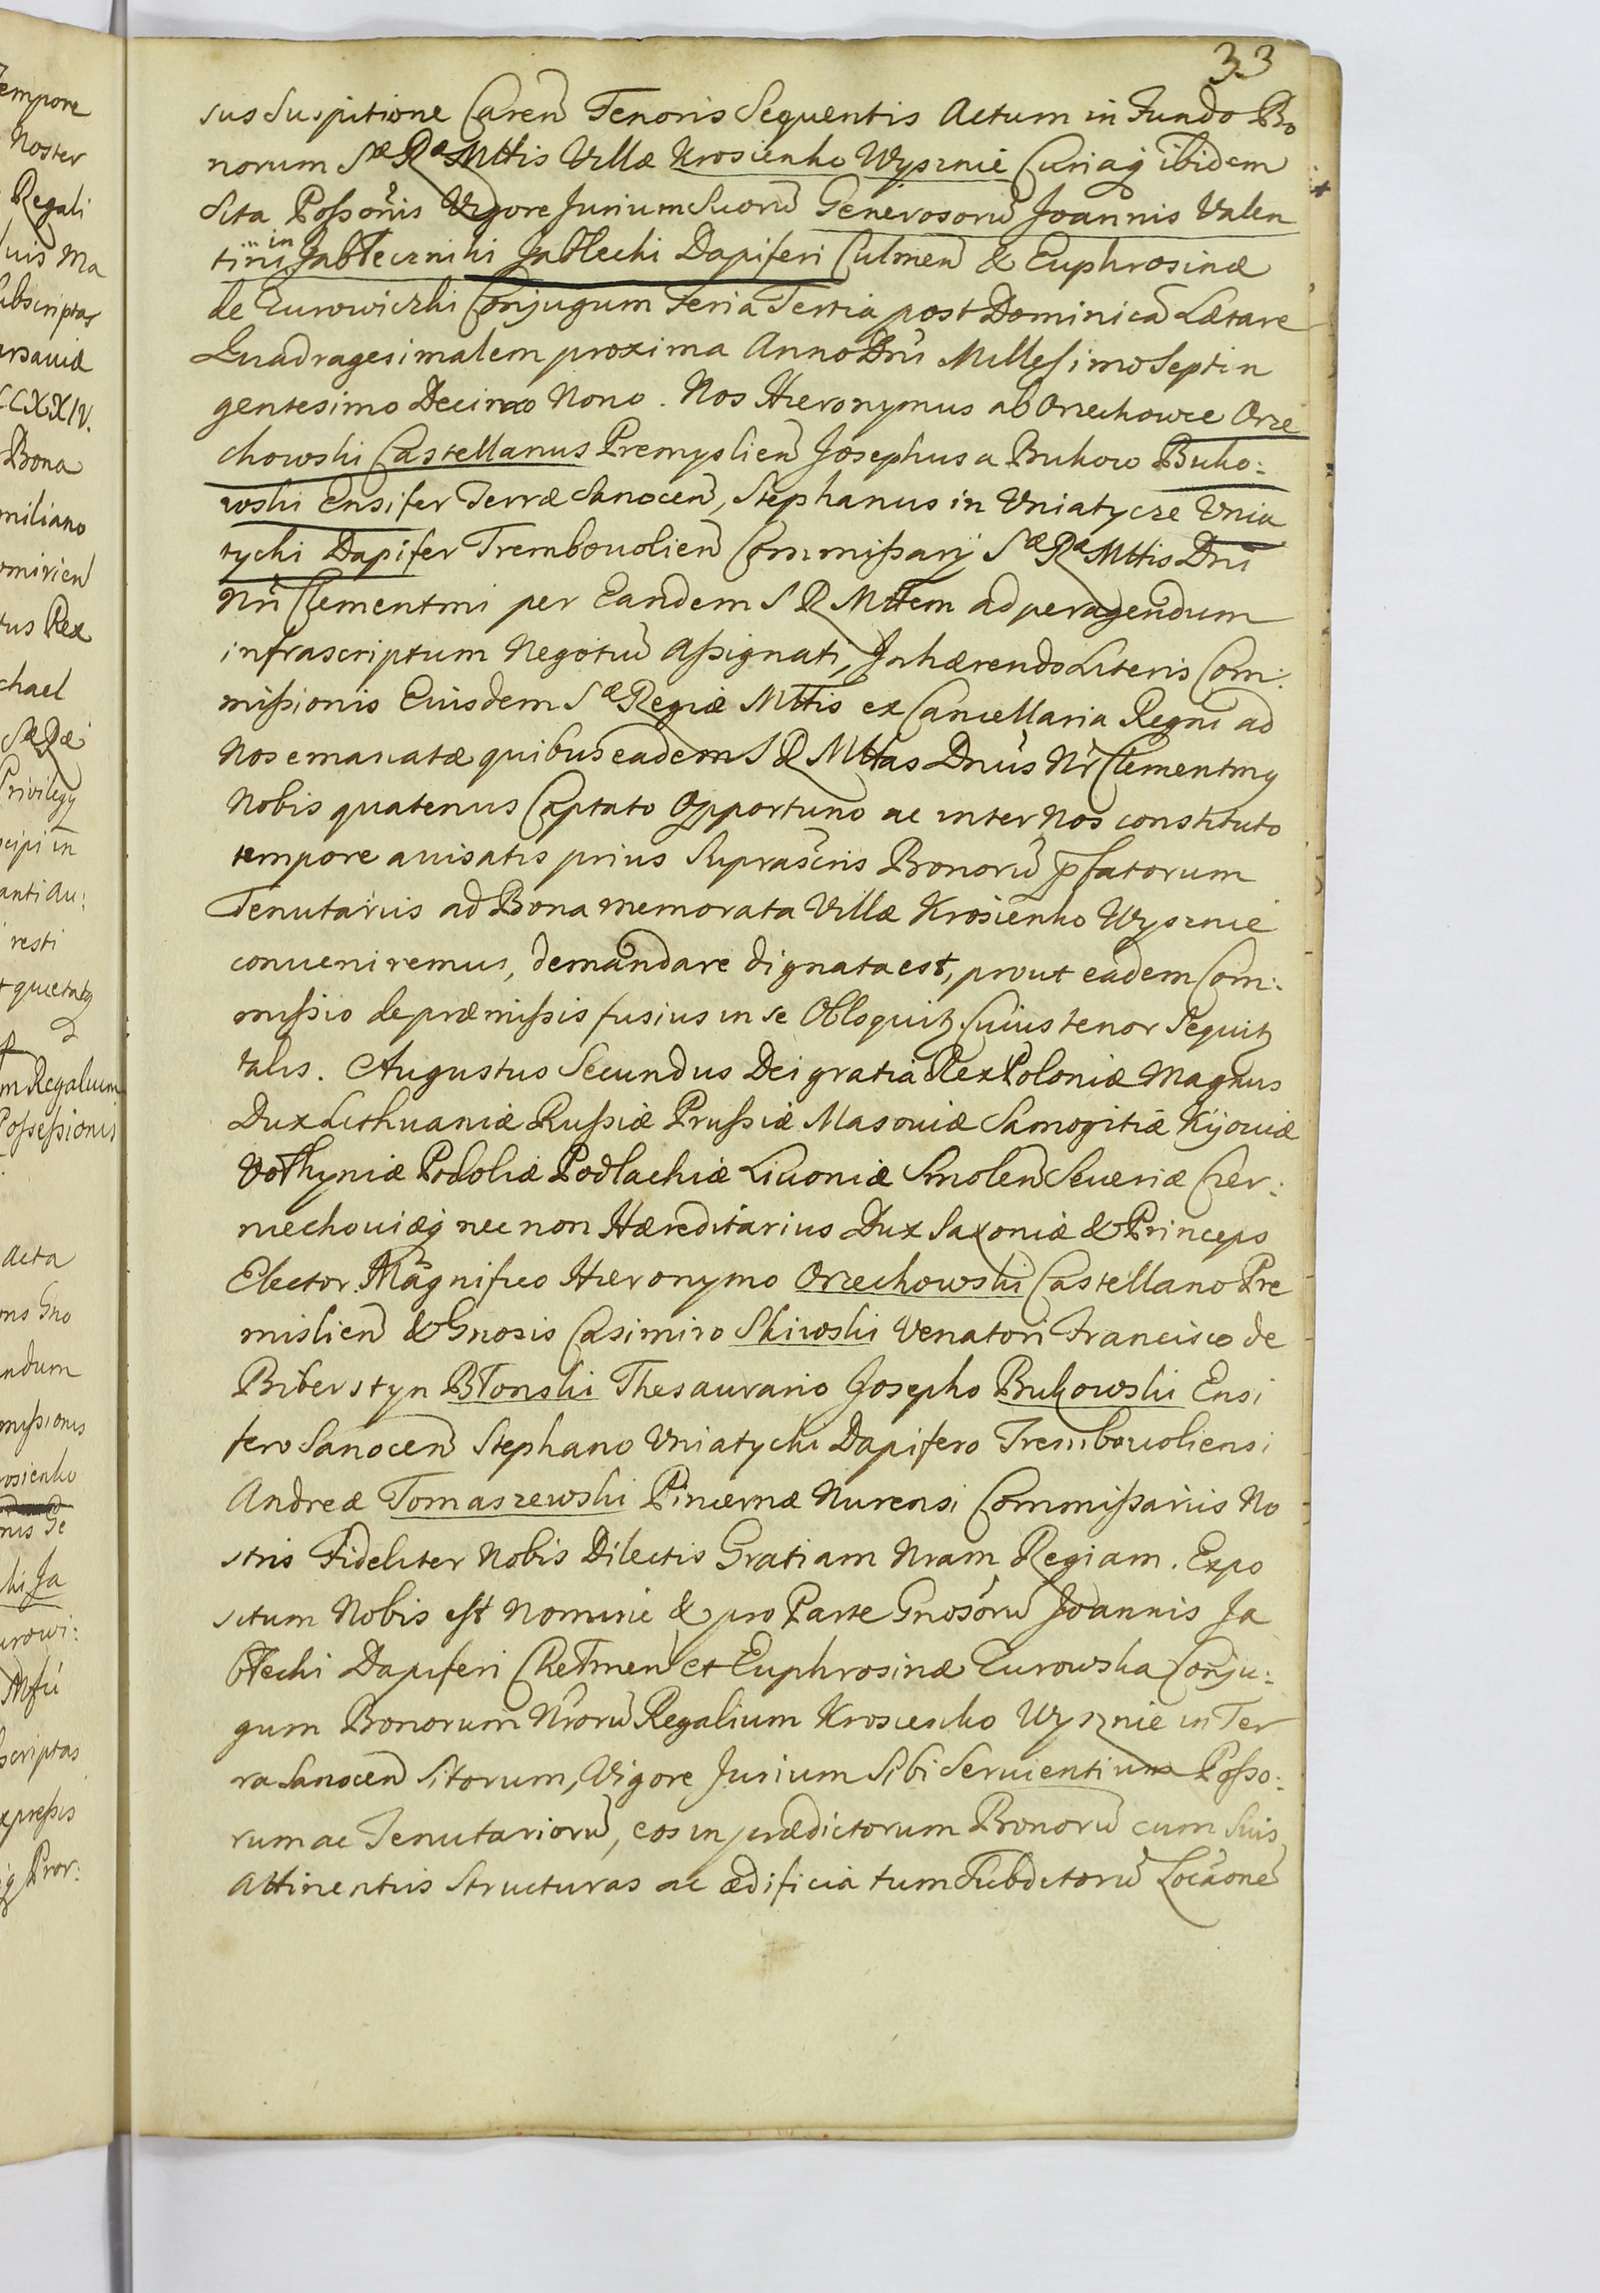 33
sus Suspitione Caren̄ Tenoris Sequentis Actum in Fundo Bo
norum Sæ Ræ Mttis Villæ Krosienko Wysznie Curiaq ibidem
Sita Possōnis Vigore Jurium Suorū Generosorū Joannis Valen
tini in Jabłeczniki Jabłecki Dapiferi Culmen̄ & Euphrosinæ
de Zurowiczki Conjugum Feria Tertia post Dominicā Lætare
Quadragesimalem proxima Anno Dnī Millesimo Septin
gentesimo Decimo Nono. Nos Hieronymus ab Orzechowce Orze
chowski Castellanus Premyslien̄ Josephus a Bukow Buko:
wski Ensifer Terræ Sanocen̄, Stephanus in Vniatycze Vnia
tycki Dapifer Trembovolien̄ Commissarij Sæ Ræ Mttis Dnī
Nrī Clementmi per Eandem S R Mttem ad peragendum
infrascriptum Negotiū Assignati, Inhærendo Literis Com:
missionis Eiusdem Sæ Regiæ Mttis ex Cancellaria Regni ad
Nos emanatæ quibus eadem S R Mttas Dnūs Nr̄ Clementmq
Nobis quatenus Captato Opportuno ac inter Nos constituto
tempore auisatis prius Suprascris Bonorū p̄fatorum
Tenutariis ad Bona memorata Villæ Krosienko Wysznie
conueniremus, demandare dignata est, prout eadem Com:
missio de præmissis fusius in se Obloquitz Cuius tenor Sequitz
talis. Augustus Secundus Dei gratia Rex Poloniæ Magnus
Dux Lithuaniæ Russiæ Prussiæ Masouiæ Samogitiæ Kijouiæ
Vołhyniæ Podoliæ Podlachiæ Liuoniæ Smolen̄ Seueriæ Czer:
niechouiæq nec non Hæreditarius Dux Saxoniæ & Princeps
Elector. Magnifico Hieronymo Orzechowski Castellano Pre
mislien̄ & Gnosis Casimiro Skiwski Venatori Francisco de
Biberstyn Błonski Thesaurario Josepho Bukowski Ensi
fero Sanocen̄ Stephano Vniatycki Dapifero Trembovoliensi
Andreæ Tomaszewski Pincernæ Nurensi Commissariis No
stris Fideliter Nobis Dilectis Gratiam Nram Regiam. Expo
situm Nobis est Nomine & pro Parte Gnosorū Joannis Ja
błecki Dapiferi Chełmen̄ et Euphrosinæ Zurowska Conju:
gum Bonorum Nrorū Regalium Krosienko Wysznie in Ter
ra Sanocen̄ Sitorum, Vigore Jurium Sibi Seruientium Posso:
rum ac Tenutariorū, eos in prædictorum Bonorū cum Suis
Attinentiis Structuras ac ædificia tum Subditorū Locaōnē